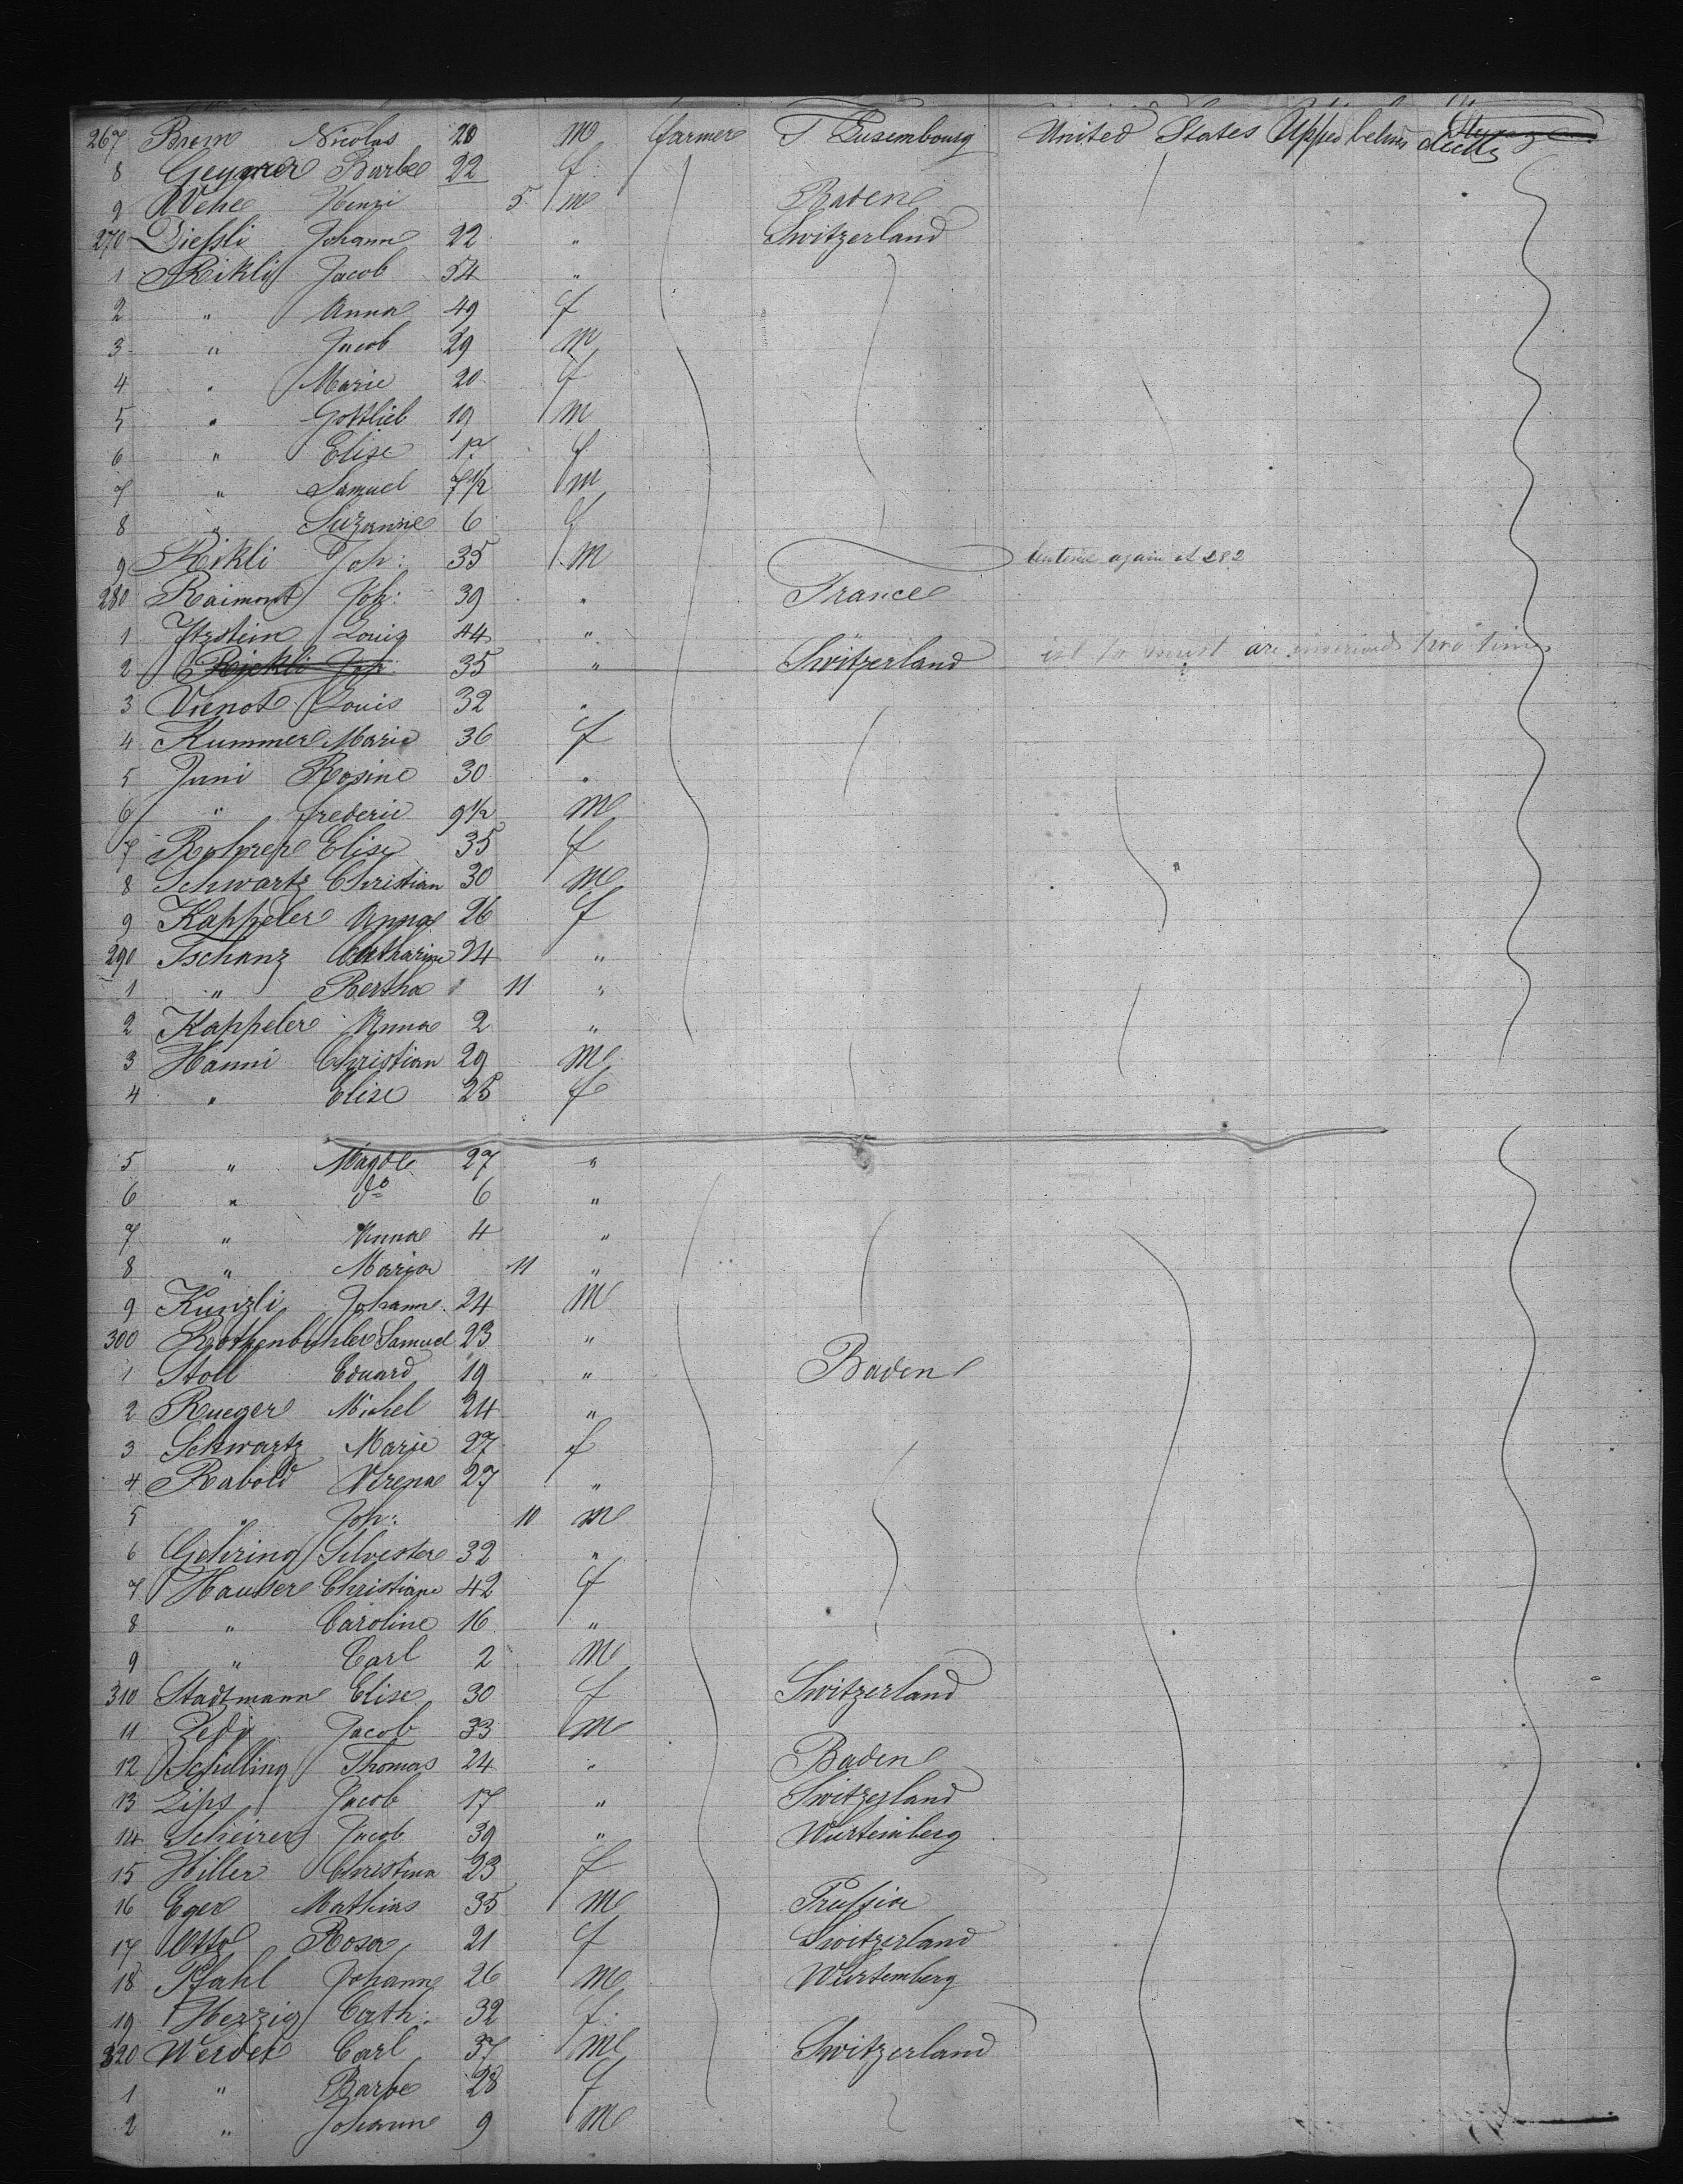 267 Brem Nicolas 20 m farmer Luxembourg United States Upper between decks
8 Geymer Barbe 22 f
9 Wehe Henri 5 m Baden
270 Diessli Johann 22 " Switzerland
1 Rikli Jacob 54 "
2 " Anna 49 f
3 " Jacob 29 m
4 " Marie 20 f
5 " Gottlieb 19 m
6 " Elise 17 f
7 " Samuel 7 1/2 m
8 " Suzanne 6 f
9 Rikli Joh: 35 m again at 282
280 Raimont Joh: 39 " France
1 Itzstein Louis 44 "
2 Rickli Joh: 35 " Switzerland are inscrived two times
3 Vienot Louis 32 "
4 Kummer Marie 36 f
5 Juni Rosine 30 "
6 " frederic 9 1/2 m
7 Rohrer Elise 35 f
8 Schwartz Christian 30 m "
9 Kappeler Anna 26 f
290 Tschanz Catharine 24 "
1 " Bertha 11 "
2 Kappeler Anna 2 "
3 Hanni Christian 29 m
4 " Elise 25 f
5 " Magdle 27 "
6 " do 6 "
7 " Anna 4 "
8 " Maria 11 "
9 Kunzli Johann 24 m
300 Rothenbuhler Samuel 23 "
1 Stoll Eduard 19 " Baden
2 Rueger Michel 24 "
3 Schwartz Marie 27 f
4 Rabold Verena 27 "
5 " Joh: 10 m
6 Gehring Silvester 32 "
7 Hauser Christiane 42 f
8 " Caroline 16 "
9 " Carl 2 m
310 Stadtmann Elise 30 f Switzerland
11 Jacob 33 m
12 Schilling Thomas 24 " Baden
13 Lips Jacob 17 " Switzerland
14 Scheirer Jacob 39 " Wurtemberg
15 Hiller Christina 23 f
16 Eger Mathias 35 m Prussia
17 Otto Rosa 21 f Switzerland
18 Pfahl Johann 26 m Wurtemberg
19 Herzig Cath: 32 f
320 Werder Carl 37 m Switzerland
1 " Barbe 28 f
2 " Johann 9 m